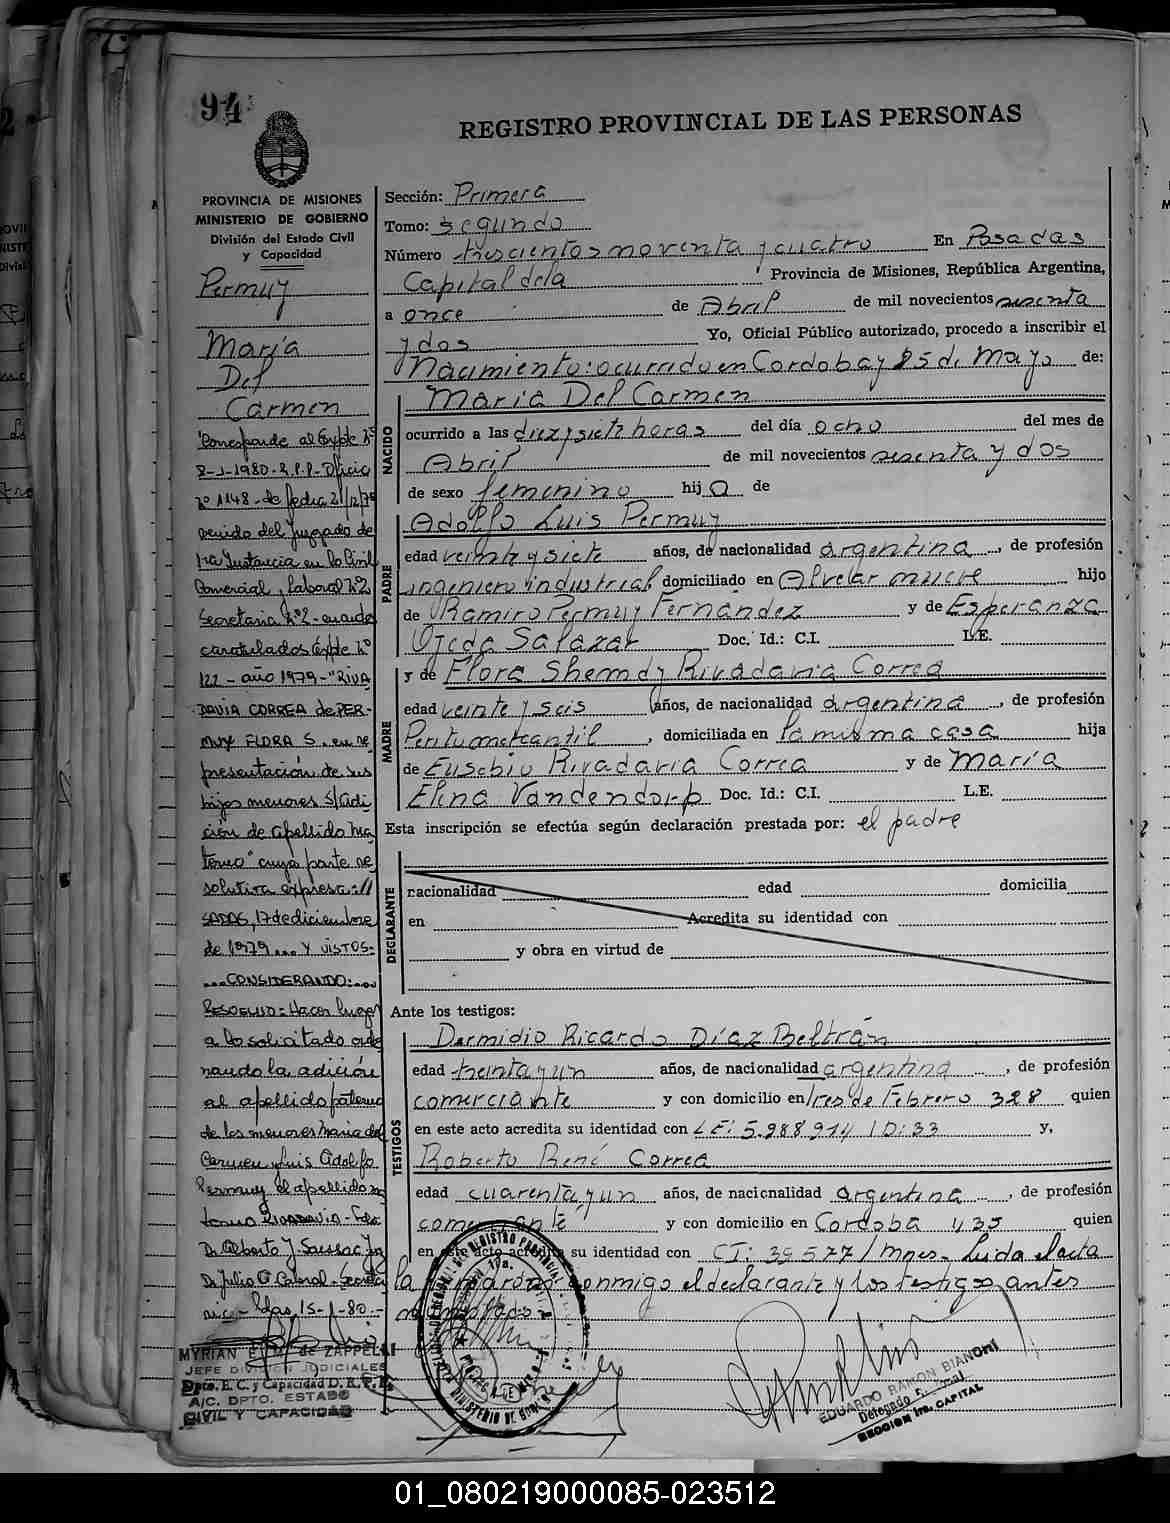 94
REGISTRO PROVINCIAL DE LAS PERSONAS
PROVINCIA DE MISIONES
MINISTERIO DE GOBIERNO
División del Estado Civil
y Capacidad
Permuy
María
Del
Carmen
Corresponde al Expte Nº
8-1-1980-R.P.P-Oficio
Nº 1148-de fecha 21/12/79
venido del Juzgado de
1ra Instancia en lo Civil
Comercial, Laboral Nº2
Secretaria Nº2-
caratulados Expte Nº
122-año 1979-"RIVA
DAVIA CORREA de PER-
MUY FLORA S. en re
presentación de sus
hijos menores S/adi
ción de apellido ma
terno" cuya parte re
solutiva expresa://
SADAS, 17 de diciembre
de 1979... Y VISTOS:
...CONSIDERANDO:...
RESUELVO: Hacer lugar
a lo solicitado orde
nando la adición
al apellido paterno
de los menores Maria del
Carmen y Luis Adolfo
Permuy el apellido ma
terno RIVADAVIA-Fdo
Dr. Alberto J.
Dr Julio C. Cabral-Secreta
rio-Pdas 15-1-80.-
MYRIAN E. de ZAPPELLI
JEFE DIVISION JUDICIALES
Dpto. E. C. y Capacidad D. R. P. P.
A/C. DPTO. ESTADO
CIVIL Y CAPACIDAD
Sección: Primera
Tomo: segundo
Número trescientos noventa y cuatro En Posadas
Capital de la Provincia de Misiones, República Argentina,
a once de Abril de mil novecientos sesenta
y dos Yo, Oficial Público autorizado, procedo a inscribir el
Nacimiento: ocurrido en Cordoba y 25 de Mayo de:
NACIDO
María Del Carmen
ocurrido a las diez y siete horas del día ocho del mes de
Abril de mil novecientos sesenta y dos
de sexo femenino hija de
PADRE
Adolfo Luis Permuy
edad veinte y siete años, de nacionalidad argentina, de profesión
ingeniero industrial domiciliado en Alvear nueve hijo
de Ramiro Permuy Fernández y de Esperanza
Ojeda Salazar Doc. Id.: C.I. L.E.
MADRE
y de Flora Shemdy Rivadavia Correa
edad veinte y seis años, de nacionalidad argentina, de profesión
Perito mercantil, domiciliada en la misma casa hija
de Eusebio Rivadavia Correa y de María
Elina Vandendorp Doc. Id.: C.I. L.E.
Esta inscripción se efectúa según declaración prestada por: el padre
DECLARANTE
nacionalidad edad domicilia
en Acredita su identidad con
y obra en virtud de
Ante los testigos:
TESTIGOS
Dermidio Ricardo Díaz Beltrán
edad treinta y un años, de nacionalidad argentina, de profesión
comerciante y con domicilio en Tres de Febrero 328 quien
en este acto acredita su identidad con LE: 5.988.914 D:33 y,
Roberto René Correa
edad cuarenta y un años, de nacionalidad argentina, de profesión
comerciante y con domicilio en Cordoba 435 quien
en este acto acredita su identidad con CI: 39577/Mnes- Leida el acta
la firmaron conmigo el declarante y los testigos antes
nombrados
EDUARDO RAMON BIANCHI
Delegado
SECCION 1ra. CAPITAL
01_080219000085-023512